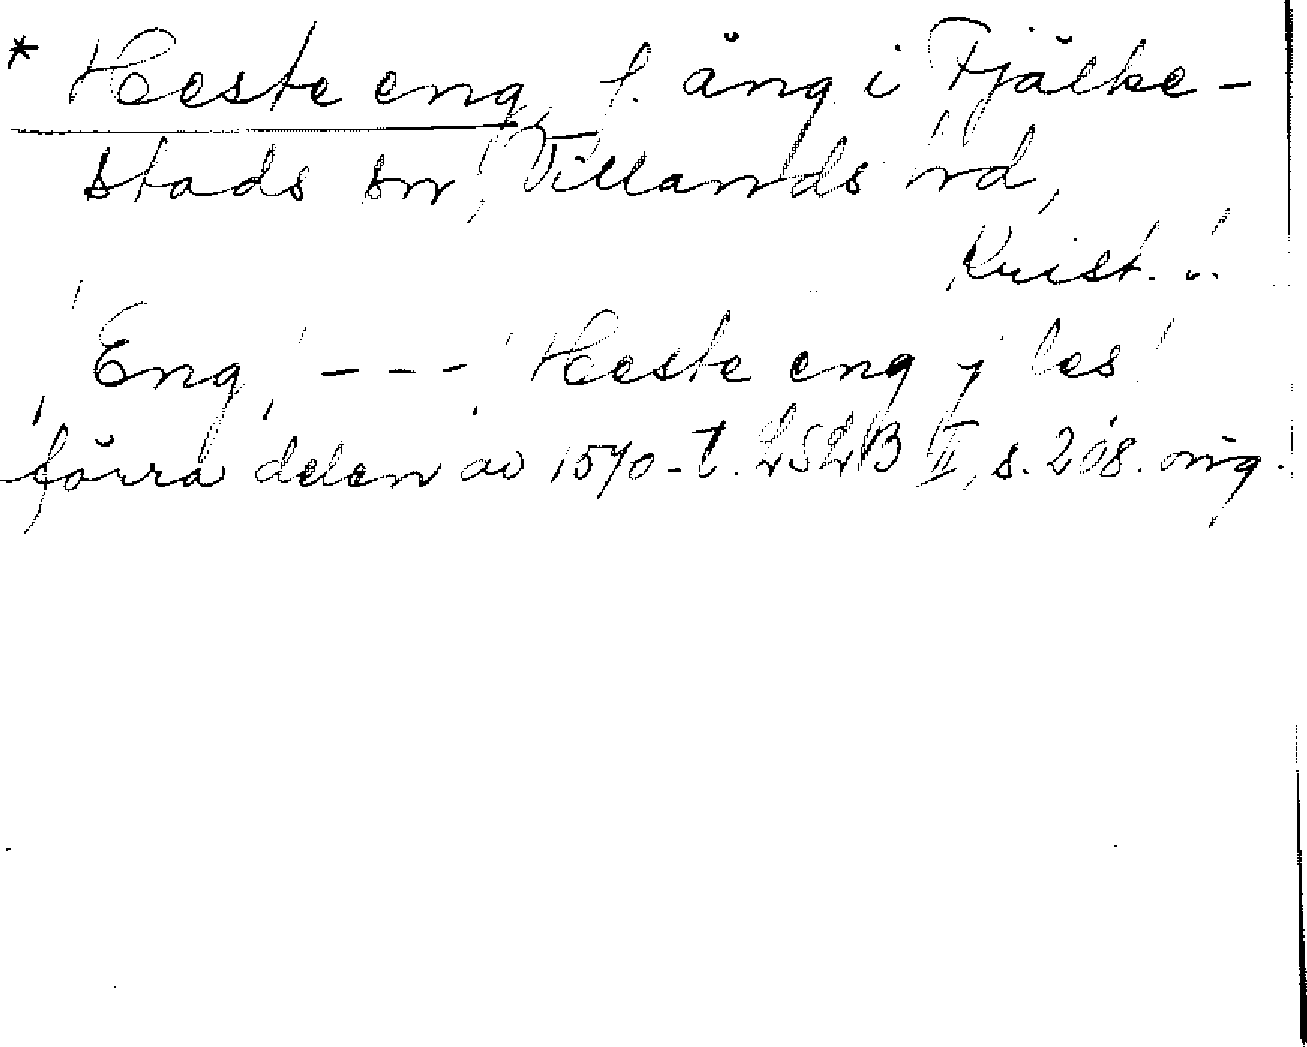 * Heste eng, f. äng i Fjälke-
stads sn, Villands hd,
Krist. l.
Eng --- Heste eng j les
förra delen av 1570-t. LSLB II, s. 208. öng.